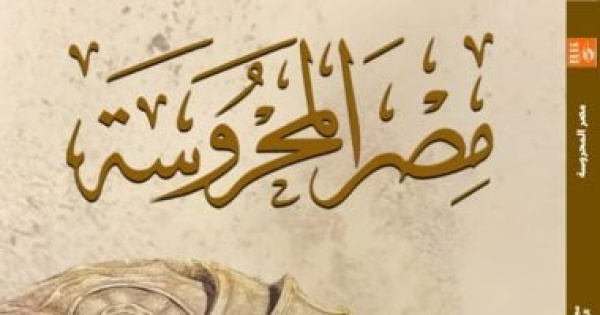 مِصْرَ المَحْرُوسَة
مصر المحروسة